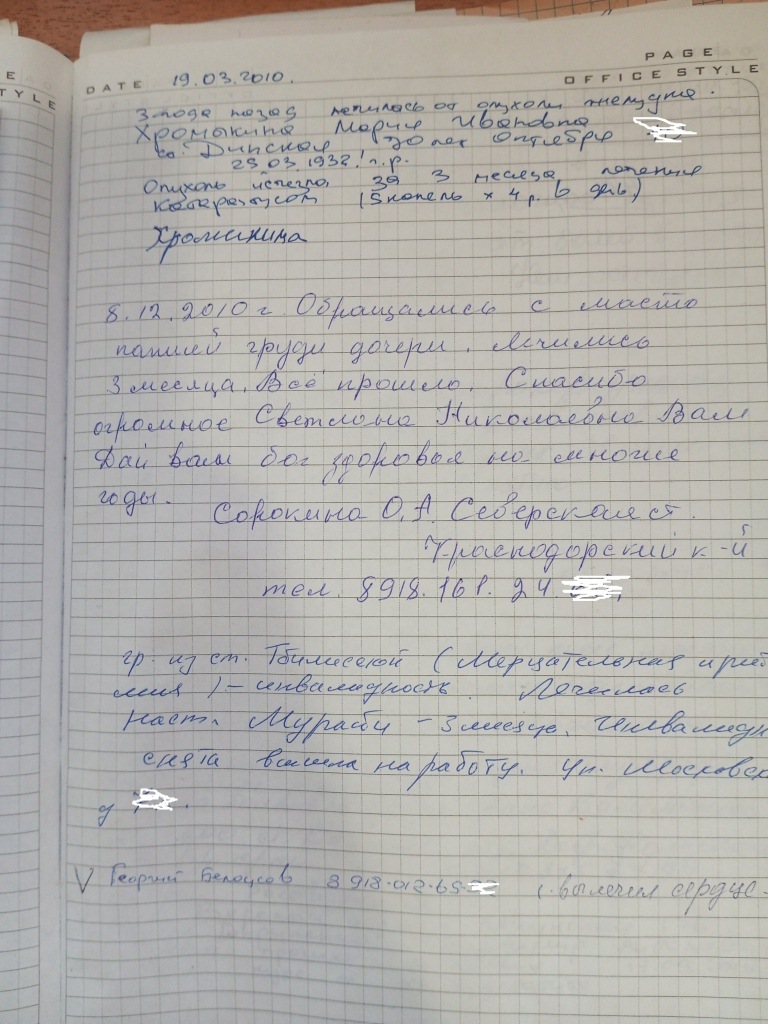 E
TYLE
PAGE
OFFICE STYLE
DATE 19.03.2010.
3 года назад лечилась от опухоли желудка.
Хромыкина Мария Ивановна
ст. Динская 70 лет Октября
25 03 1932! г.р.
Опухоль исчезла за 3 месяца лечения
(5 капель х 4 р. в день)
8.12.2010 г. Обращались с масто
патией груди дочери. Лечились
3 месяца. Всё прошло. Спасибо
огромное Светлана Николаевна Вам
Дай вам бог здоровья на многие
годы.
Сорокина О.А. Северская ст.
Краснодарский к-й
тел. 8918.161.24.
гр. из ст. Тбилисской (Мерцательная арит
мия) - инвалидность. Лечилась
наст. Мурабу - 3 месяца. Инвалидн
снята вышла на работу. ул. Московск
д
V Георгий Белоусов 8918-012-65- (вылечил сердце-